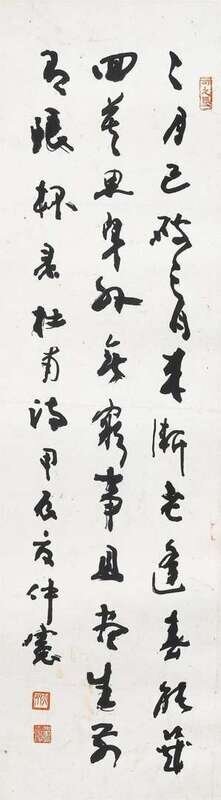 二月已破三月来渐老逢春能几
回莫思身外无穷事且尽生前
有限杯录杜甫诗甲辰夏仲